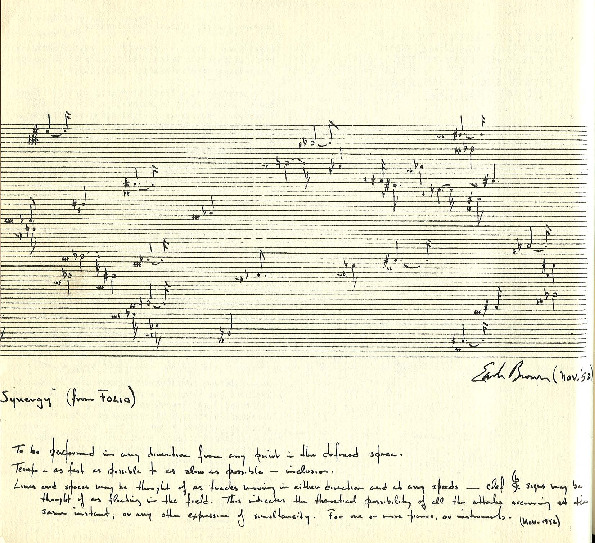 Earle Brown (Nov. '52)
"Synergy" (from FOLIO)
To be performed in any direction from any point in the defined space.
Tempo – as fast as possible to as slow as possible – inclusive.
Lines and spaces may be thought of as tracks moving in either direction and at any speeds — clef signs may be
thought of as floating in the field. This indicates the theoretical possibility of all the attacks occurring at the
same instant, or any other expression of simultaneity. For one or more pianos, or instruments. (Nov. 1952)